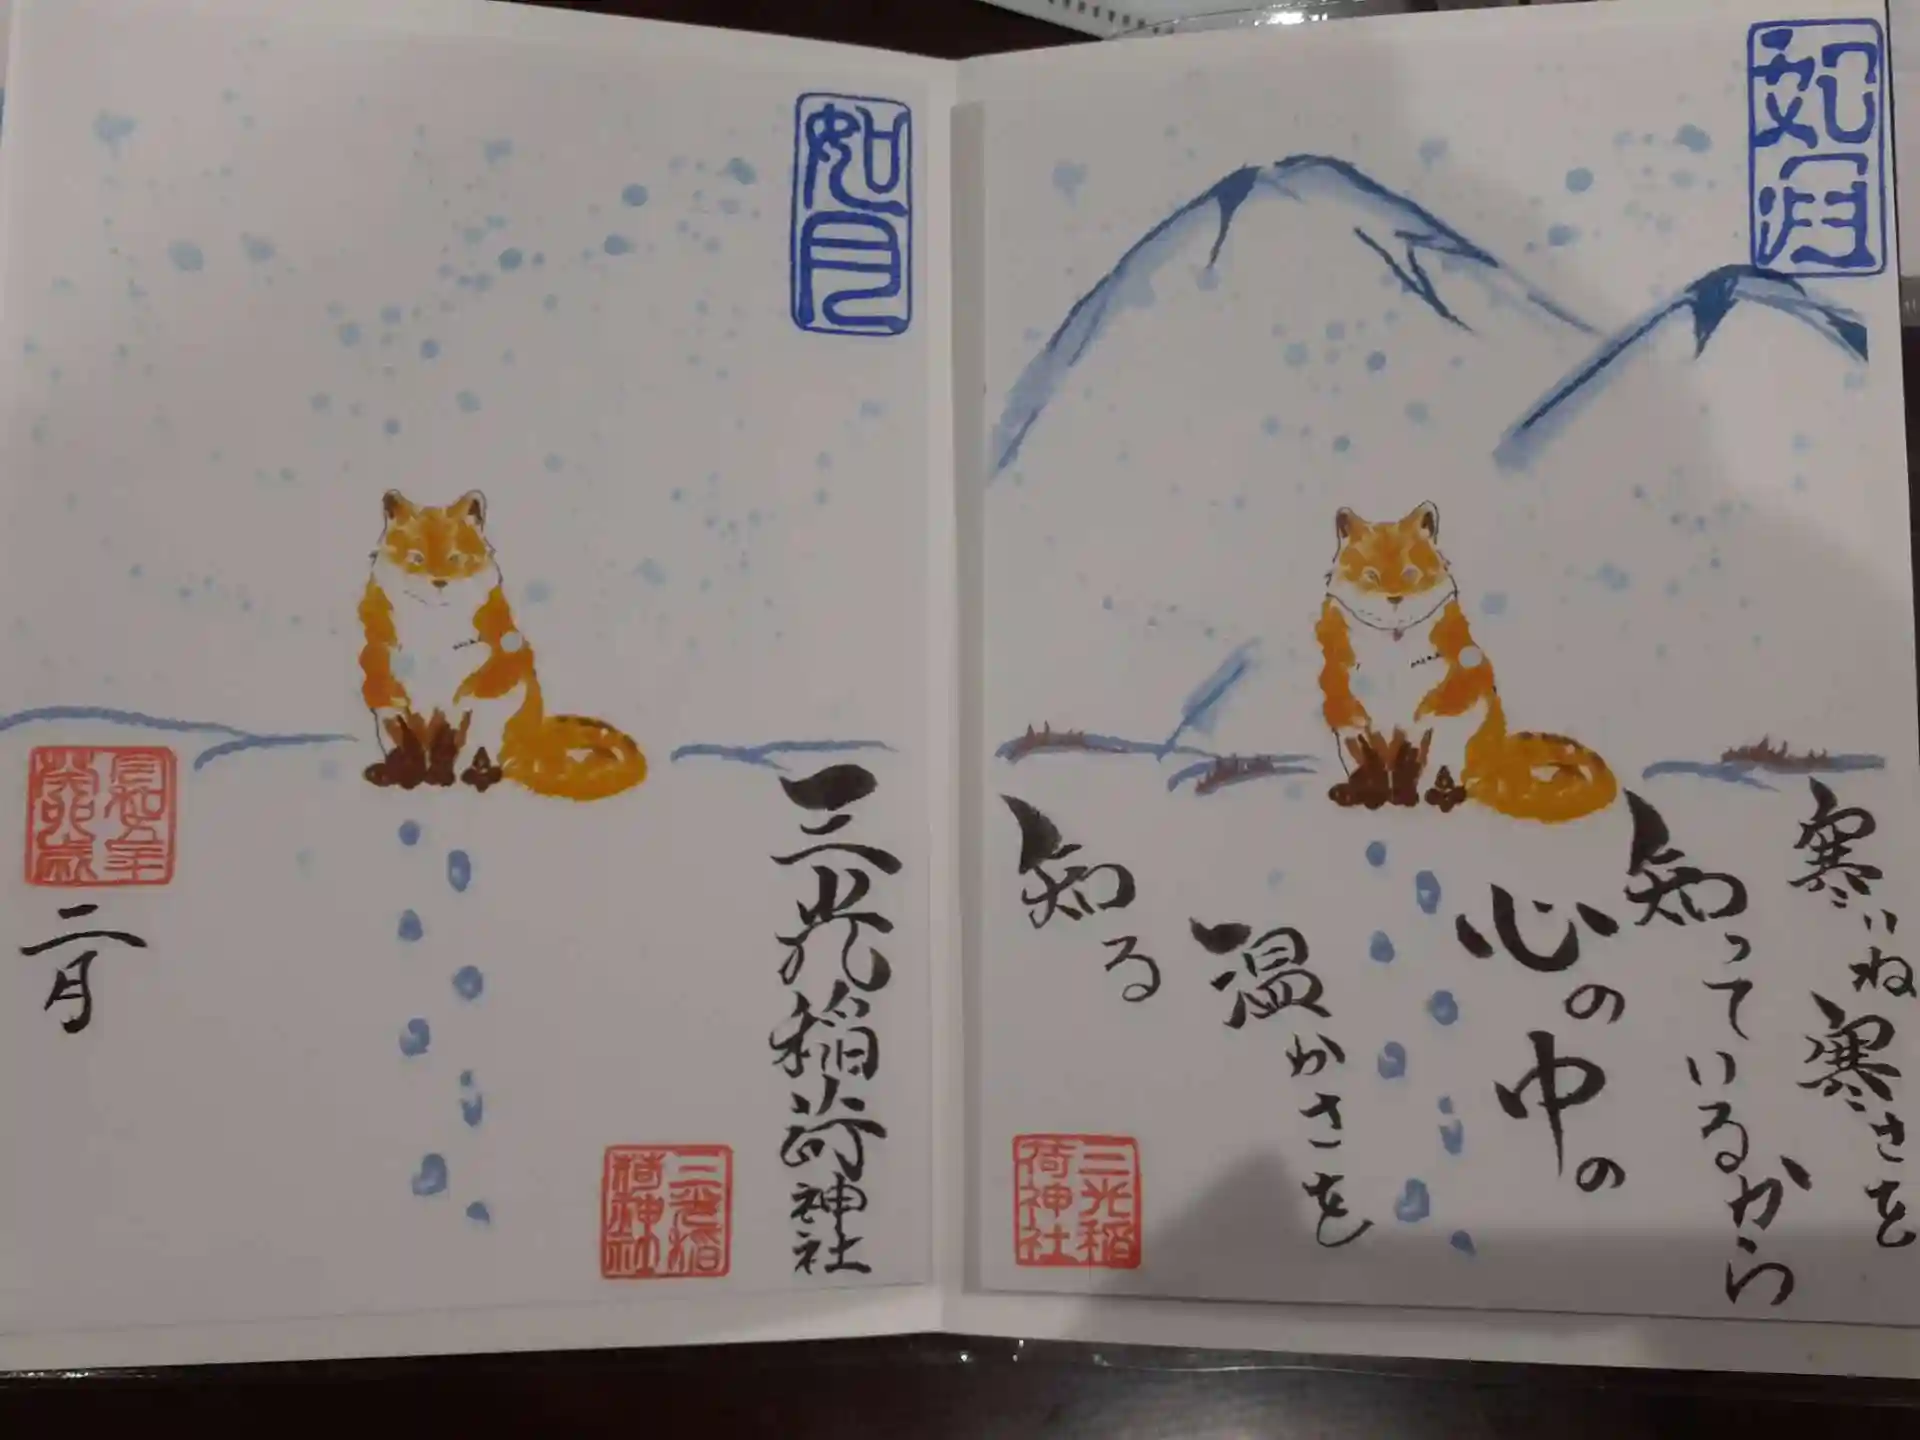 如月
寒いね寒さを
知っているから
心の中の
温かさを
知る
三光稲
荷神社
如月
三光稲荷神社
三光稲
荷神社
令和五年
癸卯歳
二月